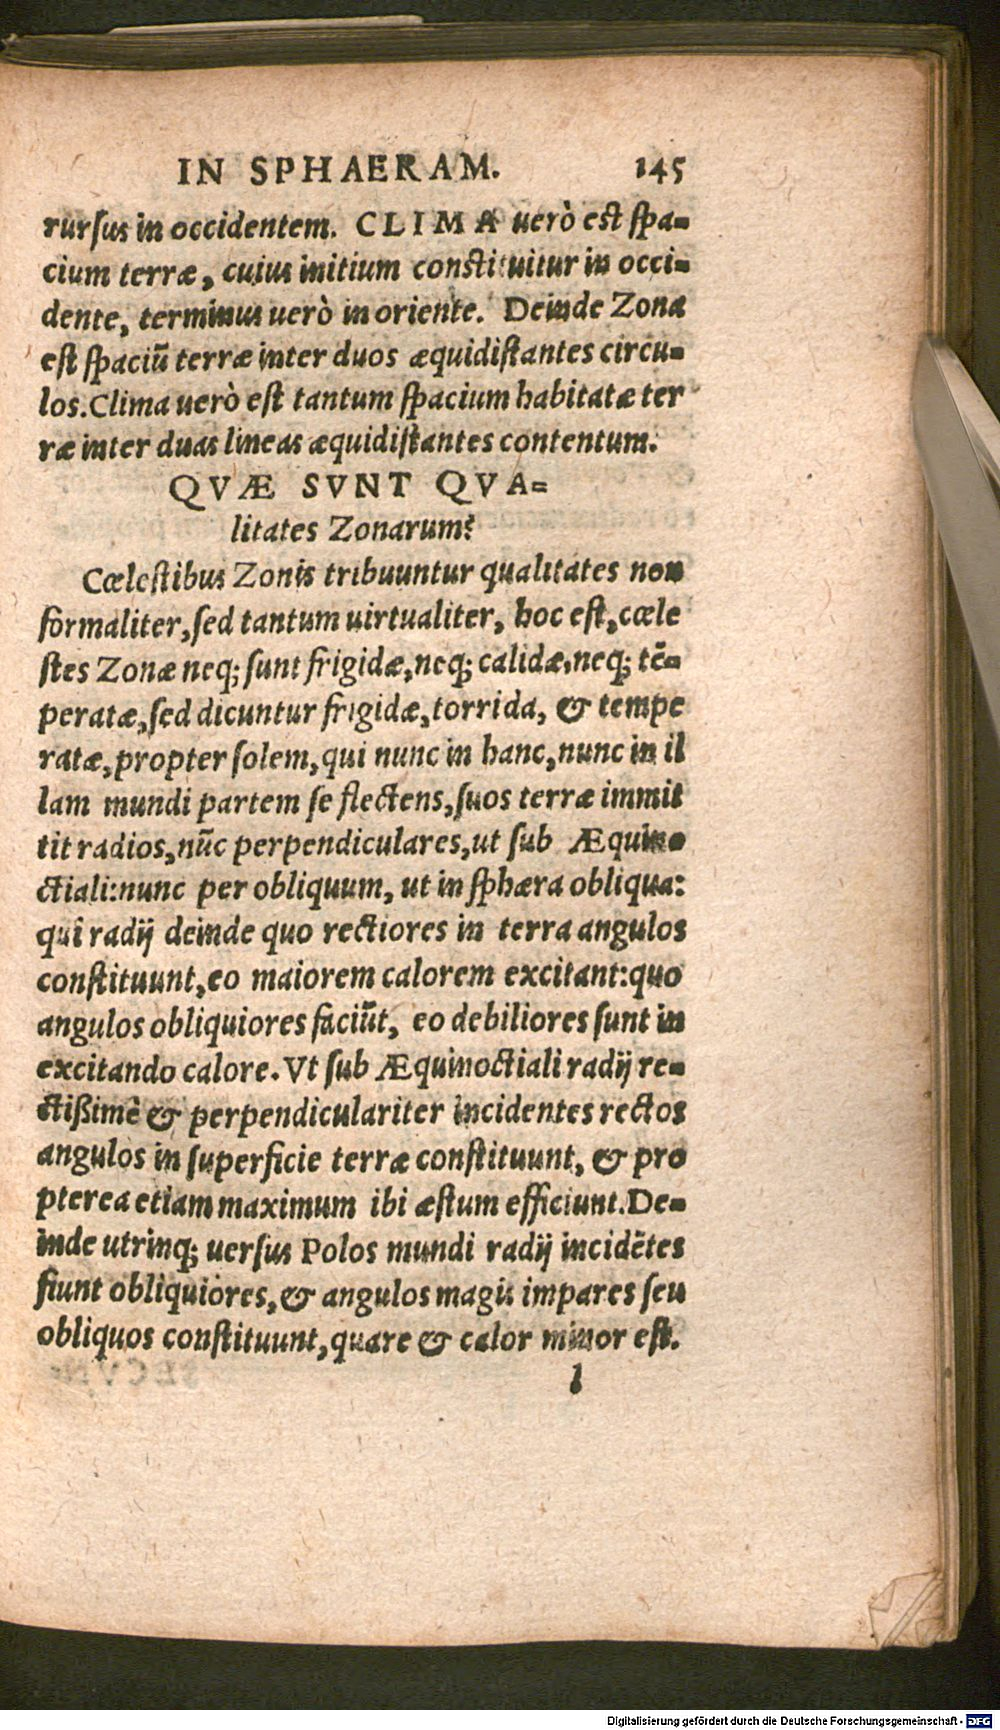 IN SPHAERAM. 145
rurſus in occidentem. CLIMA uerò eſt ſpa-
cium terræ, cuius initium conſtituitur in occi-
dente, terminus uerò in oriente. Deinde Zona
eſt ſpaciũ terræ inter duos æquidiſtantes circu-
los. Clima uerò eſt tantum ſpacium habitatæ ter
ræ inter duas lineas æquidiſtantes contentum.
QVÆ SVNT QVA-
litates Zonarum?
Cœleſtibus Zonis tribuuntur qualitates non
formaliter, ſed tantum uirtualiter, hoc eſt, cœle
ſtes Zonæ neq; ſunt frigidæ, neq; calidæ, neq; tē-
peratæ, ſed dicuntur frigidæ, torrida, & tempe
ratæ, propter ſolem, qui nunc in hanc, nunc in il
lam mundi partem ſe flectens, ſuos terræ immit
tit radios, nūc perpendiculares, ut ſub Æquino
ctiali: nunc per obliquum, ut in ſphæra obliqua:
quî radij deinde quo rectiores in terra angulos
conſtituunt, eo maiorem calorem excitant: quo
angulos obliquiores faciūt, eo debiliores ſunt in
excitando calore. Vt ſub Æquinoctiali radij re-
ctißimè & perpendiculariter incidentes rectos
angulos in ſuperficie terræ conſtituunt, & pro
pterea etiam maximum ibi æſtum efficiunt. De-
inde utrinq; uerſus Polos mundi radij incidētes
fiunt obliquiores, & angulos magis impares ſeu
obliquos conſtituunt, quare & calor minor eſt.
l
Digitalisierung gefördert durch die Deutsche Forschungsgemeinschaft - DFG